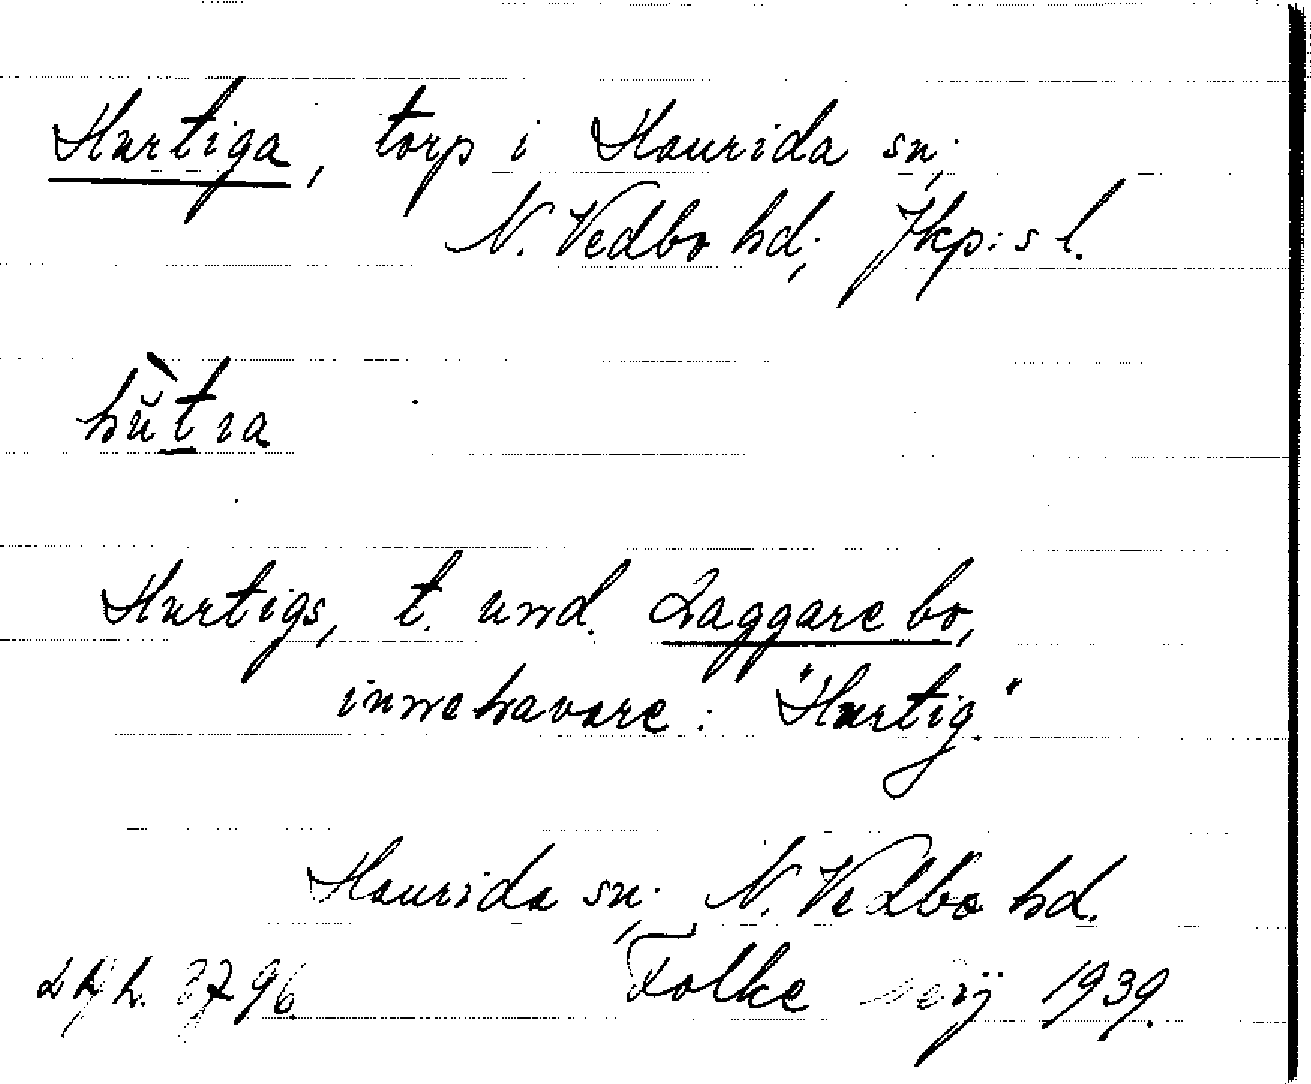 Hurtiga, torp i Haurida sn;
N. Vedbo hd; Jkp:s l.
hŭ̀tıa
Hurtigs, t. und. Laggarebo,
innehavare: "Hurtig."
Haurida sn; N. Vedbo hd.
Folke 1939.